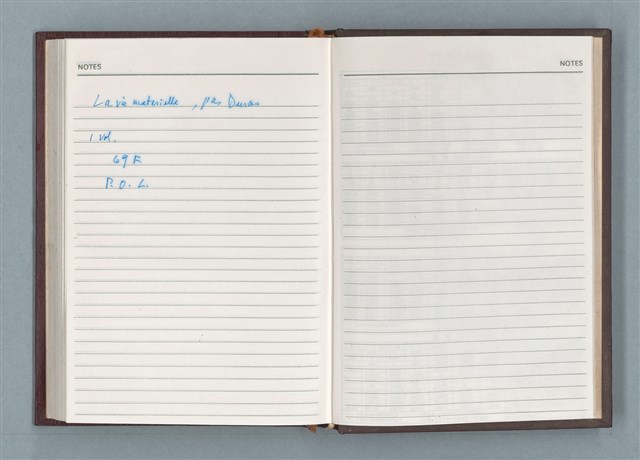 NOTES
La vie materielle, par Duras
1 vol.
69 F
P.O.L.
NOTES